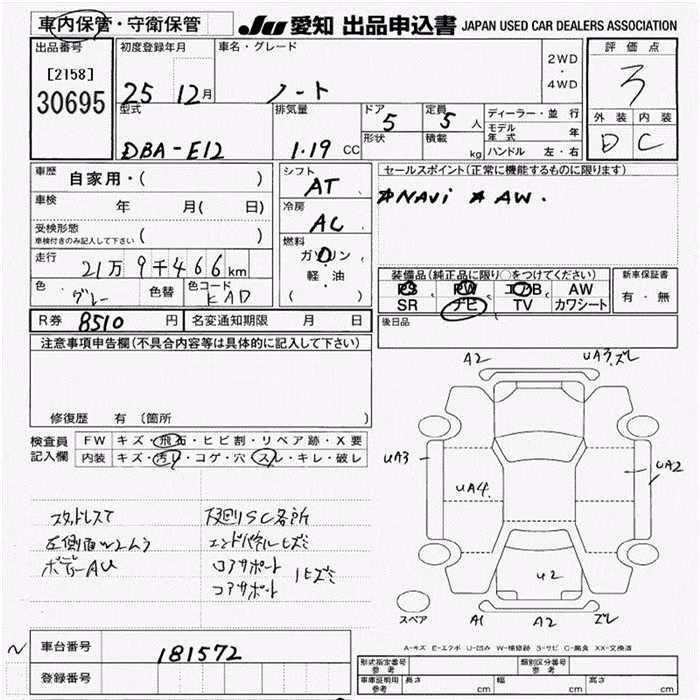 車内保管・守衛保管
JU 愛知 出品申込書 JAPAN USED CAR DEALERS ASSOCIATION
出品番号
[2158]
30695
初度登録年月
25 12月
車名・グレード
ノート
2WD
・
4WD
評価点
3
外装 内装
D C
型式
DBA-E12
排気量
1.19 CC
ドア
5
形状
定員
5 人
積載
kg
ディーラー・並行
モデル年式 年
ハンドル 左・右
車歴
自家用・( )
車検
年 月( 日)
受検形態
車検付きのみ記入して下さい ( )
走行
21万9千466km
色
グレー
色替
色コード
KAD
シフト
AT
冷房
AC
燃料
ガソリン
・
軽・油
( )
セールスポイント(正常に機能するものに限ります)
★NAVi ★AW.
装備品(純正品に限り○をつけてください)
PS PW エアB AW
SR ナビ TV カワシート
新車保証書
有・無
R券 8510 円
名変通知期限 月 日
後日品
注意事項申告欄(不具合内容等は具体的に記入して下さい)
修復歴 有(箇所
検査員
記入欄
FW キズ・飛石・ヒビ割・リペア跡・X要
内装 キズ・汚レ・コゲ・穴・スレ・キレ・破レ
スタッドレスT
左側面W2ムラ
ボディーAU
下回りSC各所
エンドパネルヒズミ
ロアサポート
コアサポート
ヒズミ
A2
UA3.ズレ
UA3
UA2
UA4.
U2
A1
A2
ズレ
スペア
A-キズ E-エクボ U-凹み W-補修跡 S-サビ C-腐食 XX-交換済
車台番号
181572
登録番号
型式指定番号
参考
類別区分番号
参考
車庫証明用
参考
長さ cm 幅 cm 高さ cm